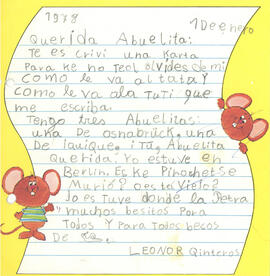 1978
1 De enero
Querida Abuelita:
Te es crivi una Karta
Para Ke no Teol olvides de mi
Como le va al tata y
Como le va ala Tuti que
me escriba.
Tengo tres Abuelitas:
una De osnabrück, una
De Iquique, i Tu, Abuelita
Querida: Yo estuve en
Berlin. Es Ke Pinochet se
Murio? o esta Viejo?
Jo es Tuve donde la Petra
muchos besitos Para
Todos Y Para todos besos
De
LEONOR Quinteros